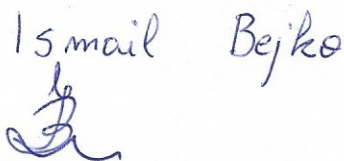 Ismail Bejko